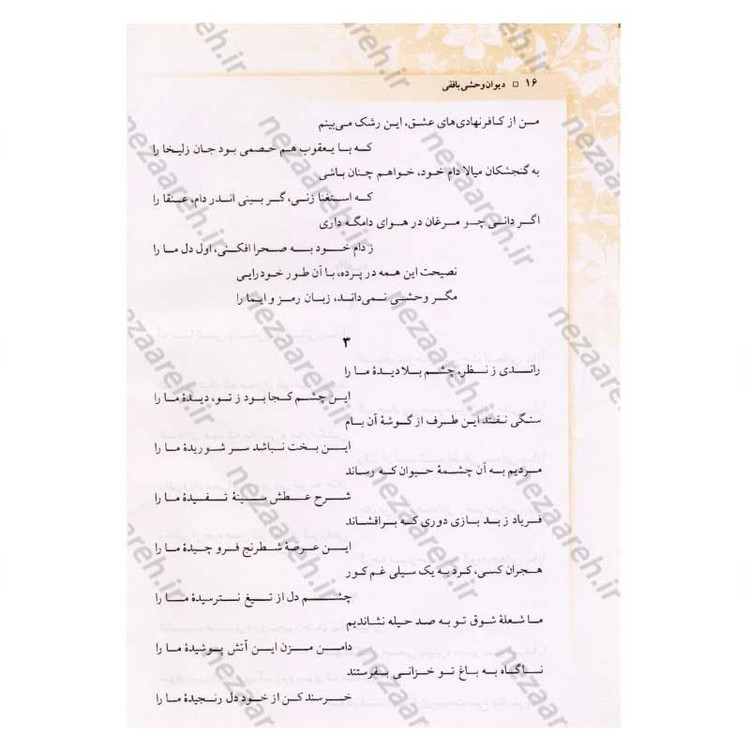 ۱۶ □ دیوان وحشی بافقی
من از کافرنهادی‌های عشق، این رشک می‌بینم
که با یعقوب هم خصمی بود جان زلیخا را
به گنجشکان میالا دام خود، خواهم چنان باشی
که استغنا زنی، گر بینی اندر دام، عنقا را
اگر دانی چو مرغان در هوای دامگه داری
ز دام خود به صحرا افکنی، اول دل ما را
نصیحت این همه در پرده، با آن طور خودرایی
مگر وحشی نمی‌داند، زبان رمز و ایما را
۳
راندی ز نظر، چشم بلادیدهٔ ما را
این چشم کجا بود ز تو، دیدهٔ ما را
سنگی نفتد این طرف از گوشهٔ آن بام
این بخت نباشد سر شوریدهٔ ما را
مردیم به آن چشمهٔ حیوان که رساند
شرح عطش سینهٔ تفیدهٔ ما را
فریاد ز بد بازی دوری که برافشاند
این عرصهٔ شطرنج فرو چیدهٔ ما را
هجران کسی، کرد به یک سیلی غم کور
چشم دل از تیغ نترسیدهٔ ما را
ما شعلهٔ شوق تو به صد حیله نشاندیم
دامن مزن این آتش پوشیدهٔ ما را
ناگاه به باغ تو خزانی بفرستند
خرسند کن از خود دل رنجیدهٔ ما را
nezaareh.ir